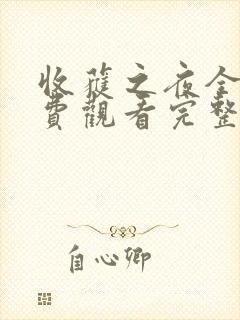 收穫之夜全
費觀看完整
自心卿